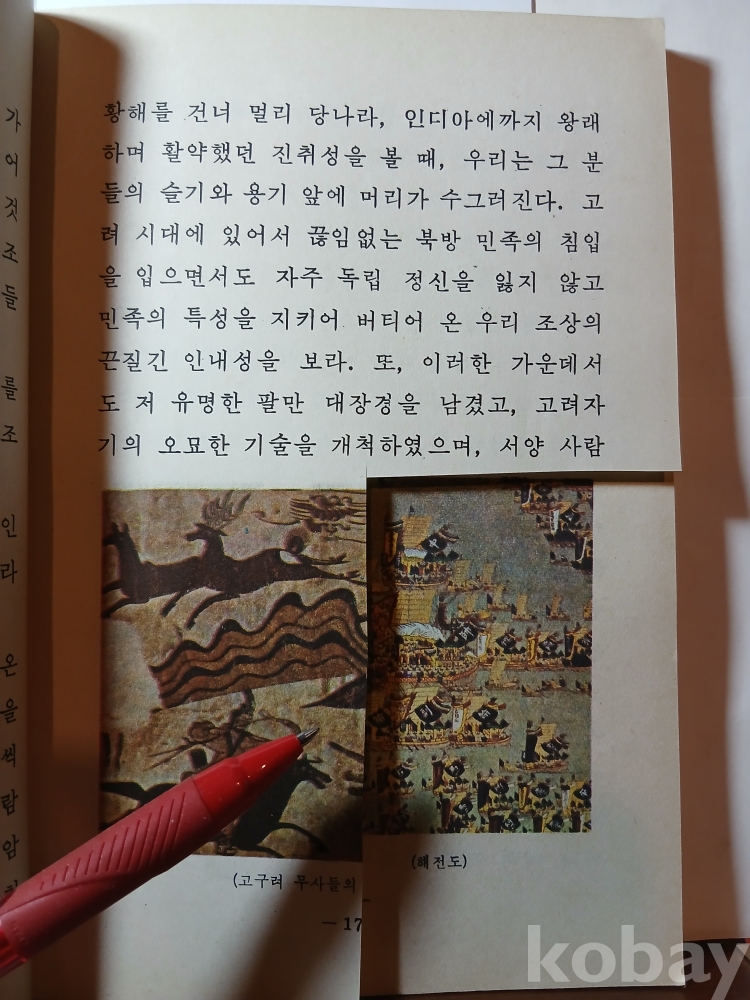 황해를 건너 멀리 당나라, 인디아에까지 왕래
하며 활약했던 진취성을 볼 때, 우리는 그 분
들의 슬기와 용기 앞에 머리가 수그러진다. 고
려 시대에 있어서 끊임없는 북방 민족의 침입
을 입으면서도 자주 독립 정신을 잃지 않고
민족의 특성을 지키어 버티어 온 우리 조상의
끈질긴 인내성을 보라. 또, 이러한 가운데서
도 저 유명한 팔만 대장경을 남겼고, 고려자
기의 오묘한 기술을 개척하였으며, 서양 사람
(고구려 무사들의
(해전도)
—17
가
어
것
조
들
를
조
인
라
온
을
씩
람
암
kobay